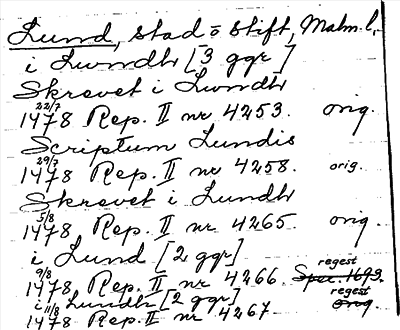 Lund, stad o stift, Malm. l.,
i Lwndh [3 ggr]
Skrevet i Lwndh
22/7 1478 Rep. II nr 4253. orig.
Scriptum Lundis
29/7 1478 Rep. II nr 4258. orig.
Skrevet i Lundh
5/8 1478 Rep. II nr 4265. orig.
i Lund [2 ggr] regest
9/8 1478 Rep. II nr 4266. Spec. 1693.
i Lundh [2 ggr] regest
11/8 1478 Rep. II nr 4267. orig.